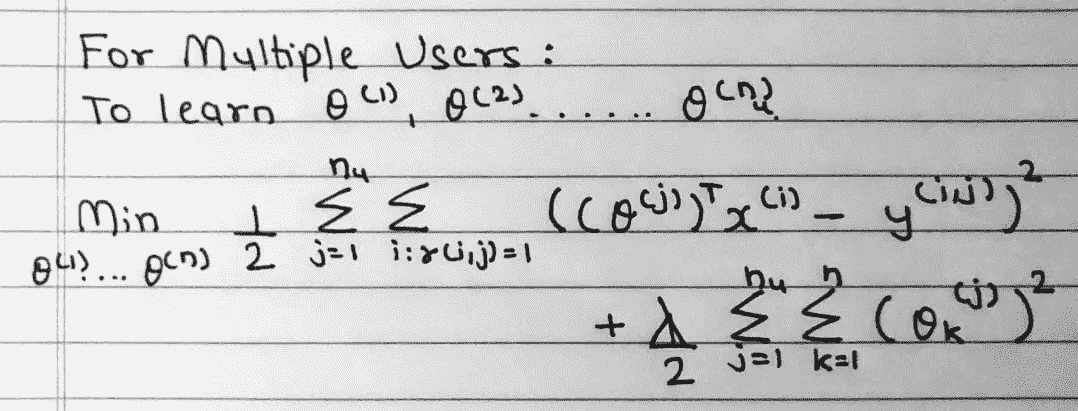 For Multiple Users :
To learn θ^(1), θ^(2) ...... θ^(n_u)
Min_{θ^(1)... θ^(n)} 1/2 Σ_{j=1}^{n_u} Σ_{i:r(i,j)=1} ((θ^(j))^T x^(i) – y^(i,j))^2
+ λ/2 Σ_{j=1}^{n_u} Σ_{k=1}^{n} (θ_k^(j))^2